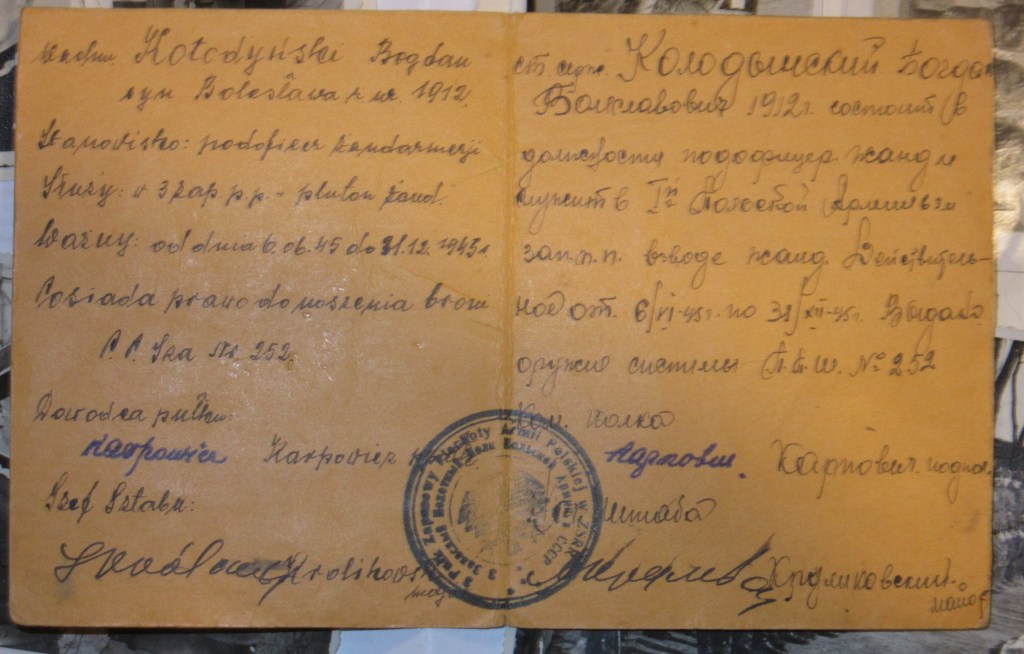 wachm. Hołodyński Bogdan
syn Bolesława r. ur. 1912.
Stanowisko: podoficer żandarmerji
Służy: w 3 zap p.p. - pluton żand.
Ważny: od dnia 6.06.45 do 31.12.1945r
Posiada prawo do noszenia broni
P.P. Sza Nr. 252.
Dowódca pułku:
Karpowicz Karpowicz
Szef Sztabu:
Krolikows
3 Pułk Zapasowy Piechoty Armii Polskiej w ZSRR
3 Запасный Пехотный Полк Польской Армии в СССР
ст. серж. Колодынский Богдан
Болеславович 1912г. состоит в
должности подофицер жанд и
служит в Iй Польской Армии 3м
зап.п.п. взводе жанд. Действитель-
но от 6/VI-45г. по 31/XII-45г. Выдано
оружие системы П.П.Ш. № 252
Ком. полка
Карпович. Карпович. подпол.
Штаба
Круликовский-
майор